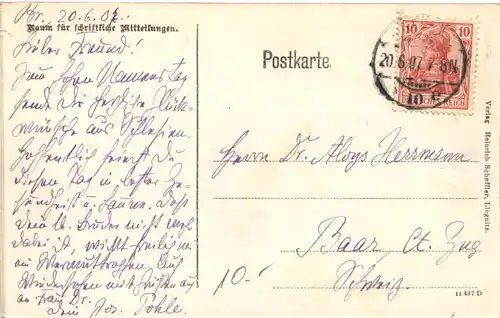 20.6.07.
Raum für schriftliche Mitteilungen.
Lieber Freund!
Zum hohen Namenstag
sende Dir herzliche Glück-
wünsche aus Schlesien.
Hoffentlich feierst Du
diesen Tag in bester Ge-
sundheit u. Laune. Dass
Dein Bruder nicht mehr
dabei ist, wirft freilich
Wermuttropfen. Auf
Wiedersehen mit Grüßen auch
an Frau Dr.
Dein Jos. Pohle.
Postkarte
10 10
20.6.07.7-8N
DEUTSCHES REICH
Herrn Dr. Aloys Herrmann
Baar, Ct. Zug
Schweiz.
10.-
11 437 D
Verlag Heinrich Scheffler, Liegnitz.